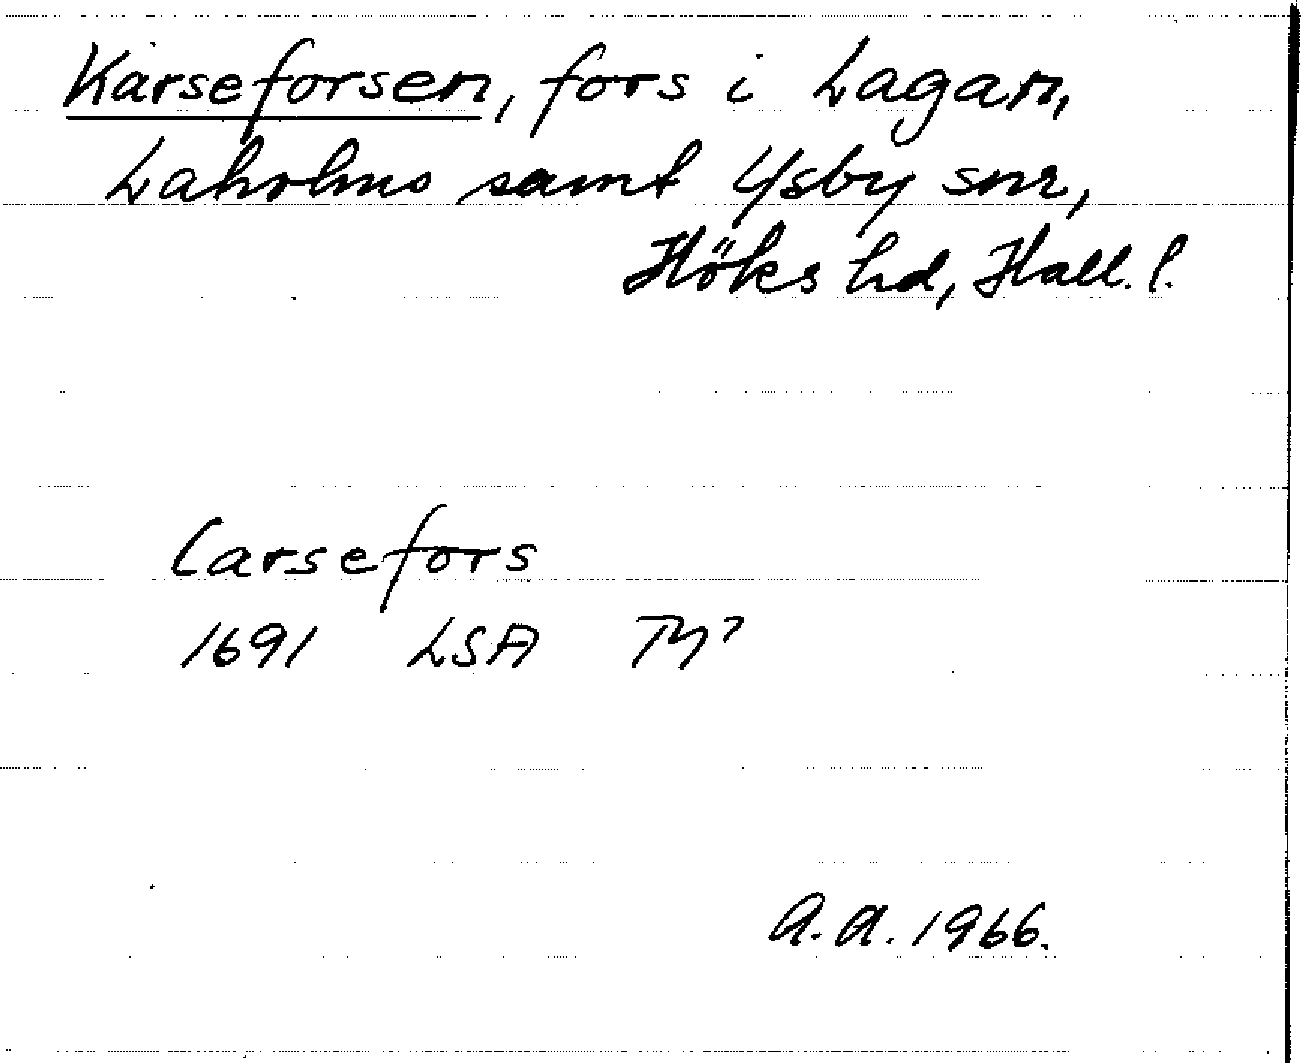 Karseforsen, fors i Lagan,
Laholms samt Ysby snr,
Höks hd, Hall. l.
Carsefors
1691 LSA
A. A. 1966.